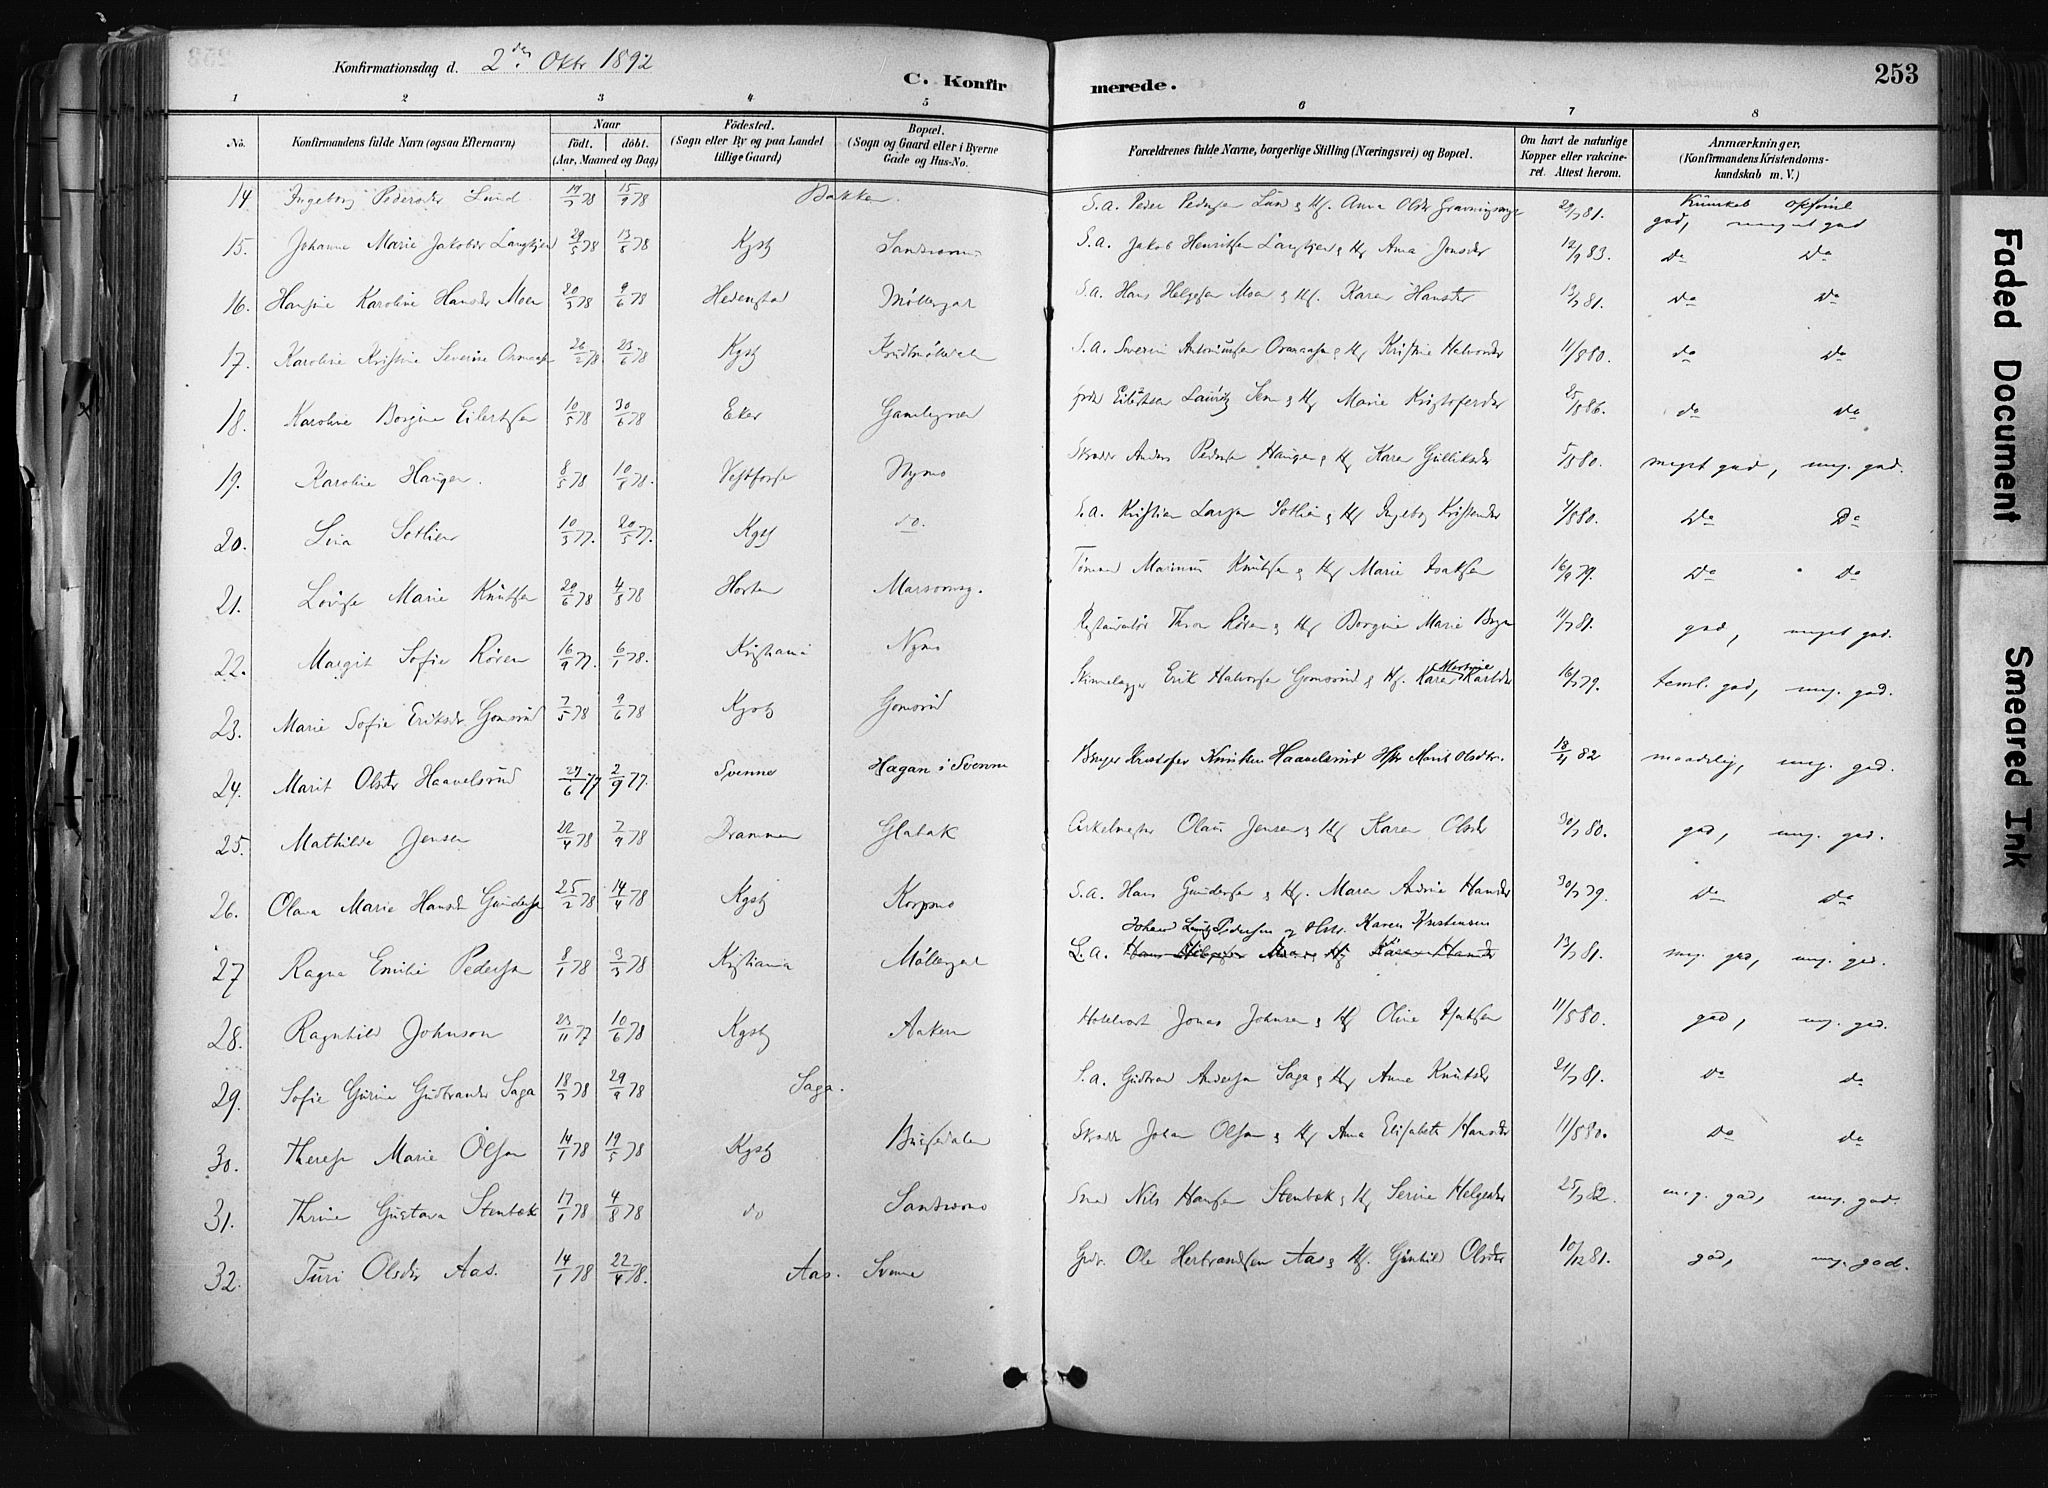 Konfirmationsdag d. 2den Oktbr 1892
C. Konfirmerede.
253
1 2 3 4 5 6 7 8
No. Konfirmandens fulde Navn (ogsaa Efternavn) Naar født. døbt. (Aar, Maaned og Dag) Fødested. (Sogn eller By og paa Landet tillige Gaard) Bopæl. (Sogn og Gaard eller i Byerne Gade og Hus-No. Forældrenes fulde Navne, borgerlige Stilling (Næringsvei) og Bopæl. Om havt de naturlige Kopper eller vakcineret. Attest herom. Anmærkninger. (Konfirmandens Kristendomskundskab m. V.)
14 Ingeborg Pedersdr Lund 78 15/9 78 Bakken. S.a. Peder Pedersen Lund & Hf. Anna Olsdr 81. Kundskab opførsel god, meget god
15. Johanne Marie Jakobsdr Langkjen 29/5 78 13/8 78 Kgsb Sandsværv S.a. Jakob Henriksen Langkjen & Hf Anna Jensdr 12/9 83. do do
16. Hansine Karoline Hansdr Moen 20/3 78 9/6 78 Hedenstad Møllergat S.a. Hans Helgesen Moen & Hf. Karen Hansdtr 13/7 81. do do
17. Karoline Kristine Severine 26/2 78 23/6 78 Kgsb S.a. Severin Antoniussen & Hf Kristine Halvorsdr 11/8 80. do do
18. Karoline Borgine Eilertsen 10/5 78 30/6 78 Eker Eilertsen Lauritz & Hf Marie Kristofersdr 86. do do
19. Karoline Haugen. 8/5 78 10/8 78. Vestfosse Nymo Skrædd Anders Pedersen Haugen & Hf Karen Gulliksdr 5/8 80. meget god, meg. god.
20. Lina Sotlien 10/3 77. 20/5 77. Kgsb do. S.a. Kristian Larsen Sotlien & Hf Ingeborg Kristensdr 80. do Do
21. Lovise Marie Knutsen 20/6 78 4/8 78 Horten Marsovnsg. Marinus Knutsen & Hf Marie Isaksen 16/9 79. do do
22. Margit Sofie Røren 16/9 77. 6/1 78. Kristiania Nymo Restauratør Thron Røren & Hf Borgine Marie 11/7 81. god, meget god.
23. Marie Sofie Eriksdr Gomsrud 7/5 78 9/6 78 Kgsb Gomsrud Erik Halvorsen Gomsrud & Hf. Karen Martine Karlsdr 16/7 79. teml. god, meg. god.
24. Marit Olsdtr Haavelsrud 27/6 77 2/9 77. Svenne Hægan i Svenne Bruger Kristofer Knutsen Haavelsrud Hstr Marit Olsdtr. 18/4 82 maadelig, meg. god.
25. Mathilde Jensen 22/4 78 7/9 78 Drammen Glabak Cirkelmester Olaus Jensen & Hf Karen Olsdr 30/7 80. god, meg. god.
26. Olava Marie Hansdr Gundersen 25/2 78 14/4 78 Kgsb Korpmo S.a. Hans Gundersen & Hf. Maren Andrine Hansdr 30/7 79. do do
27 Ragna Emilie Pedersen 8/1 78 3/3 78 Kristiania Møllergat Johan Lauritz Pedersen og Hstr. Karen Kristensen
L.a. Hans Helgesen Moen & Hf Karen Hansdr 13/7 81. meg. god, meg. god.
28. Ragnhild Johnson 23/11 77 10/6 78 Kgsb Aaken Hotelvert Jonas Johnsen & Hf Oline Isaksen 11/8 80. god, meg. god.
29. Sofie Gurine Gudbrandsdr Saga 18/7 78 29/9 78 Saga. S.a. Gudbrand Andersen Saga & Hf Anne Knutsdr 21/7 81. do do
30. Therese Marie Olsen 14/1 78 19/5 78 Kgsb Skrædd Johan Olsen & Hf Anna Elisabeth Hansdr 11/8 80. do do
31. Thrine Gustava Stenbæk 17/1 78 4/8 78 do Sandsværv Smed Nils Hansen Stenbæk & Hf Serine Helgesdr 25/7 82. meg. god, meg. god.
32. Turi Olsdr Aas. 14/1 78 22/4 78. Aas. Svenne Gdr. Ole Herbrandsen Aas & Hf. Gunhild Olsdtr 10/12 81. god, meg. god.
Faded Document
Smeared Ink